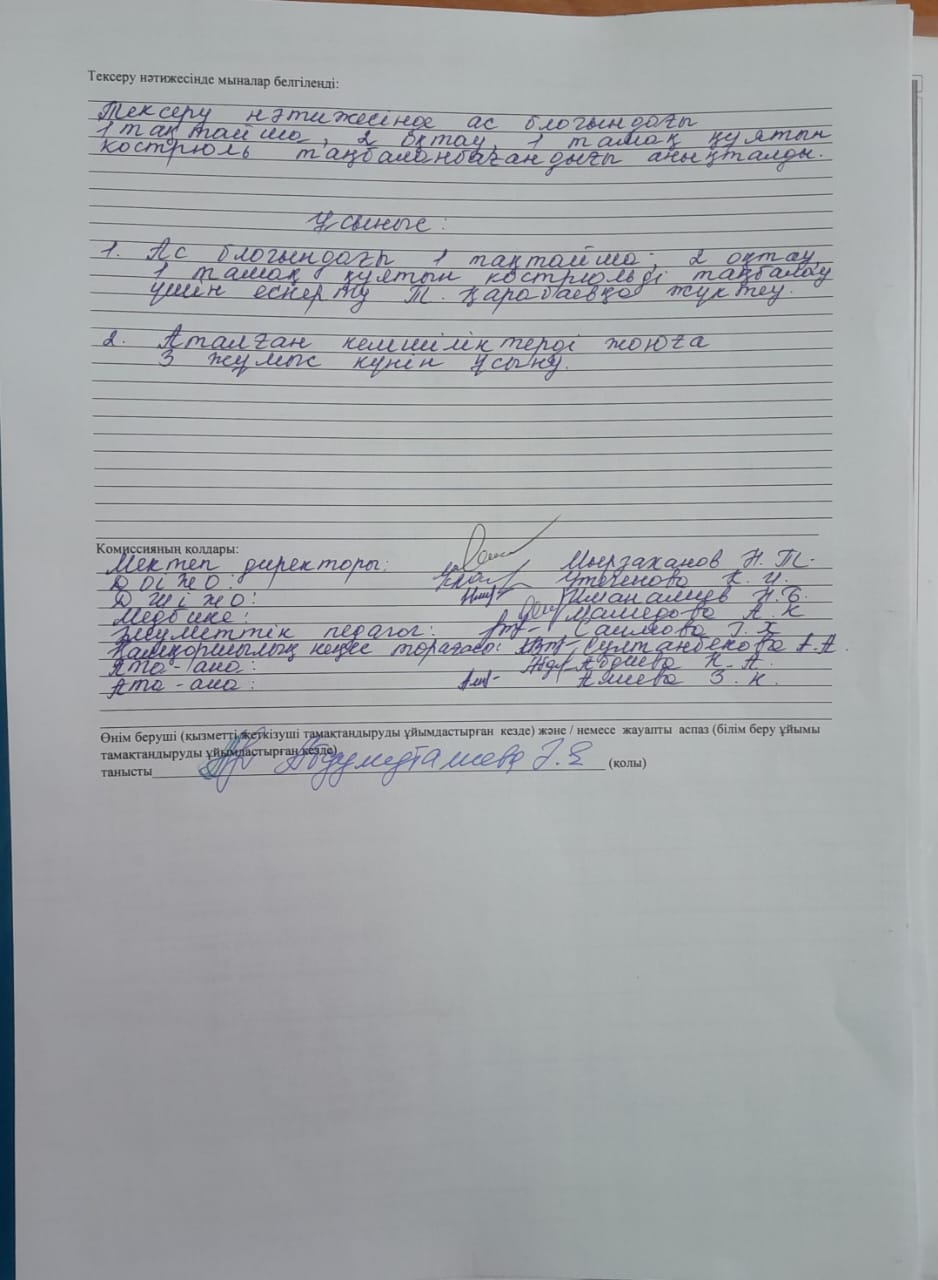 Тексеру нәтижесінде мыналар белгіленді:
Тексеру нәтижесінде ас блогындағы
1 тақтайша, 2 оқтау, 1 тамақ құятын
кострюль таңбаланбағандығы анықталды.
Ұсыныс:
1. Ас блогындағы 1 тақтайша, 2 оқтау,
1 тамақ құятын кострюльді таңбалау
үшін ескерту Т. Қарабаевқа жүктеу.
2. Аталған кемшіліктерді жоюға
3 жұмыс күнін ұсыну.
Комиссияның қолдары:
Мектеп директоры: Мырзаханов Н. Т.
ДОІЖО: Утегенова К. И.
ДШІЖО: Иманалиев Н. Б.
Медбике: Мамедова А. К
Әлеуметтік педагог: Саимова Г. Х
Қамқоршылық кеңес төрағасы: Султанбекова А. А.
Ата-ана: Абдиева К. А.
Ата-ана: Алиева З. К.
Өнім беруші (қызметті жеткізуші тамақтандыруды ұйымдастырған кезде) және / немесе жауапты аспаз (білім беру ұйымы
тамақтандыруды ұйымдастырған кезде)
танысты (қолы)